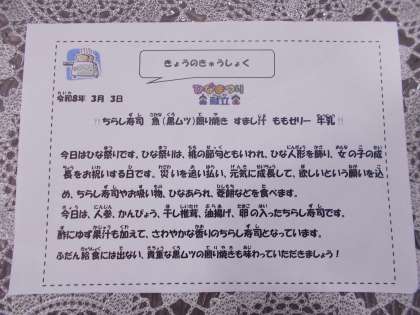 きょうのきゅうしょく
ひなまつり
献立
令和8年 3月 3日
!!ちらし寿司 魚(黒ムツ)照り焼き すまし汁 ももゼリー 牛乳!!
今日はひな祭りです。ひな祭りは、桃の節句ともいわれ、ひな人形を飾り、女の子の成
長をお祝いする日です。災いを追い払い、元気に成長して、欲しいという願いを込
め、ちらし寿司やお吸い物、ひなあられ、菱餅などを食べます。
今日は、人参、かんぴょう、干し椎茸、油揚げ、卵の入ったちらし寿司です。
酢にゆず果汁も加えて、さわやかな香りのちらし寿司となっています。
ふだん給食には出ない、貴重な黒ムツの照り焼きも味わっていただきましょう!